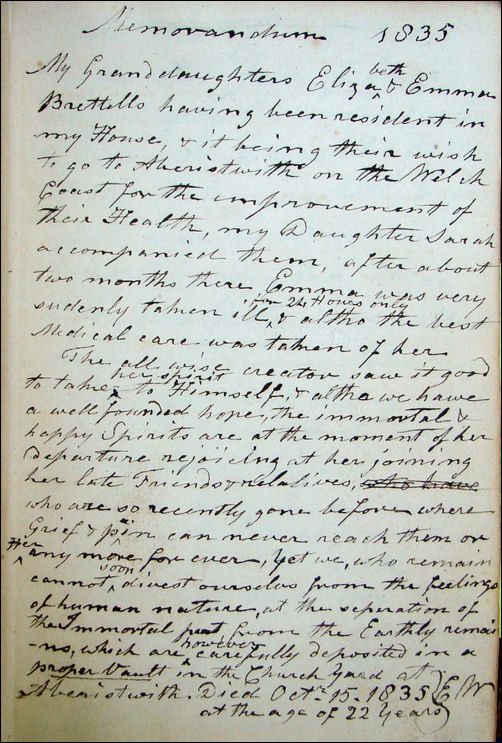 Memorandum 1835
My Granddaughters Elizabeth & Emma
Brettells having been resident in
my House, & it being their wish
to go to Aberistwith on the Welch
Coast for the improvement of
their Health, my Daughter Sarah
accompanied them, after about
two months there Emma was very
sudenly taken ill, for 24 Hours only & altho the best
Medical care was taken of her
The all wise creator saw it good
to take her spirit to Himself, & altho we have
a well founded hope, the immortal &
happy Spirits are at the moment of her
departure rejoicing at her joining
her late Friends & relatives, who have
who are so recently gone before where
Grief & pain can never reach them or
Her any more for ever, Yet we, who remain
cannot, soon divest ourselves from the feelings
of human nature, at the separation of
the Immortal part from the Earthly remai
-ns, which are however carefully deposited in a
proper Vault in the Church Yard at
Aberistwith. Died Octr. 15. 1835 E W
at the age of 22 Years